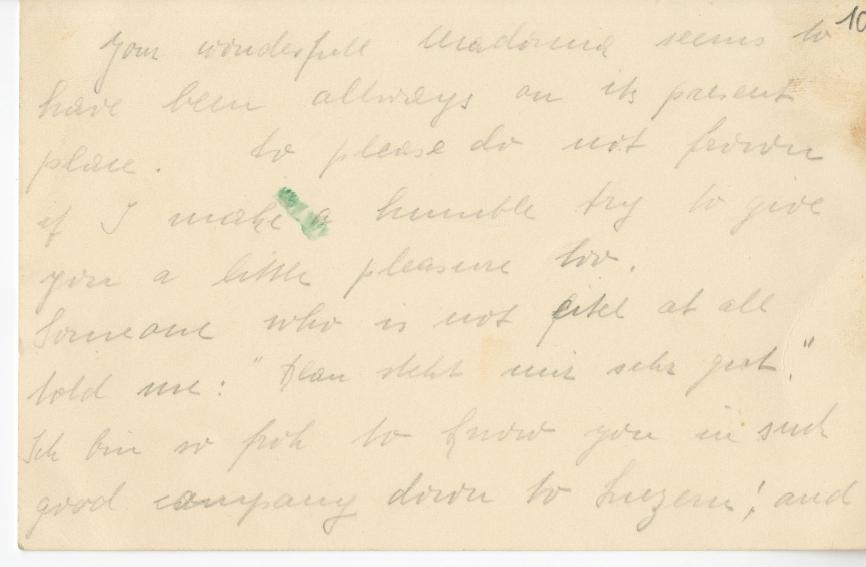 10
Your wonderfull Madonna seems to
have been allways on its present
place. So please do not frown
if I make a humble try to give
you a little pleasure too.
Someone who is not eitel at all
told me: "Blau steht mir sehr gut."
Ich bin so froh to know you in such
good company down to Luzern! and